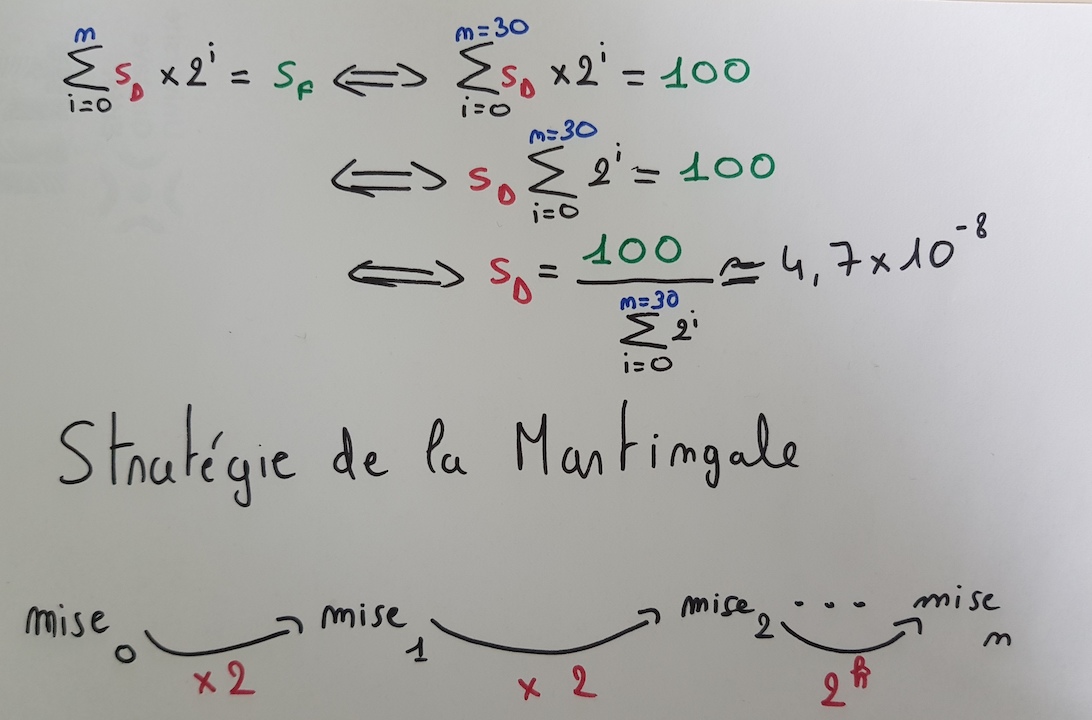 ∑_{i=0}^{n} S_D × 2^i = S_F ⟺ ∑_{i=0}^{n=30} S_D × 2^i = 100
⟺ S_D ∑_{i=0}^{n=30} 2^i = 100
⟺ S_D = 100 / ∑_{i=0}^{n=30} 2^i ≃ 4,7 × 10^{-8}
Stratégie de la Martingale
mise_0 → mise_1 → mise_2 ... → mise_n
×2 × 2